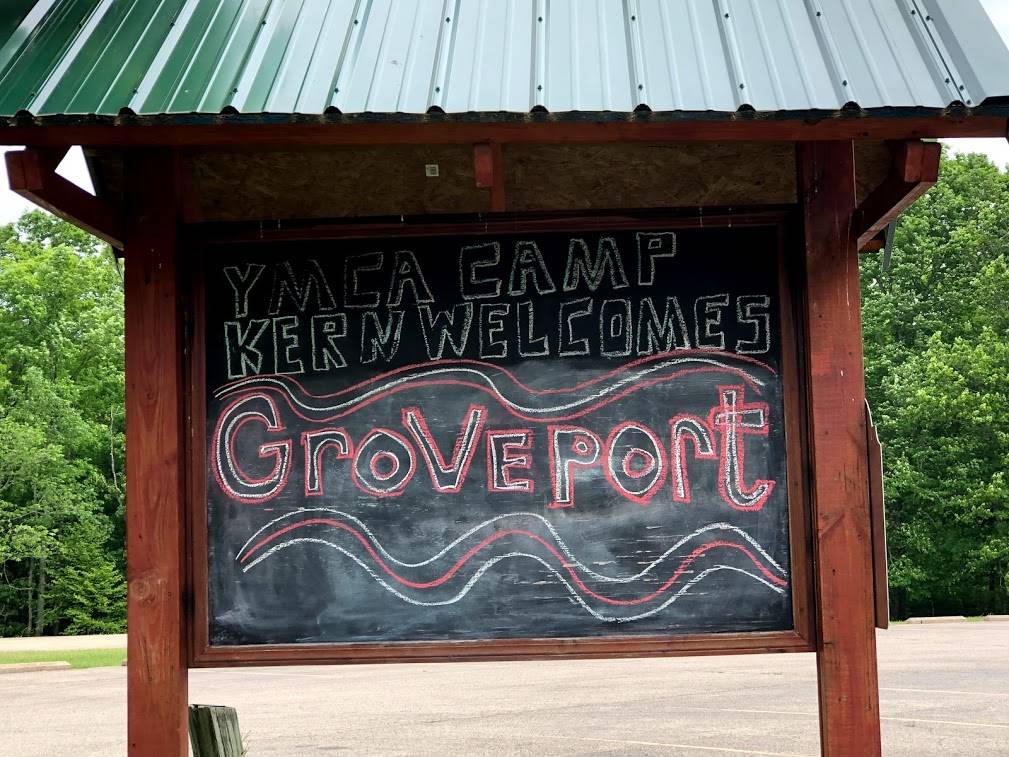 YMCA CAMP
KERN WELCOMES
Groveport